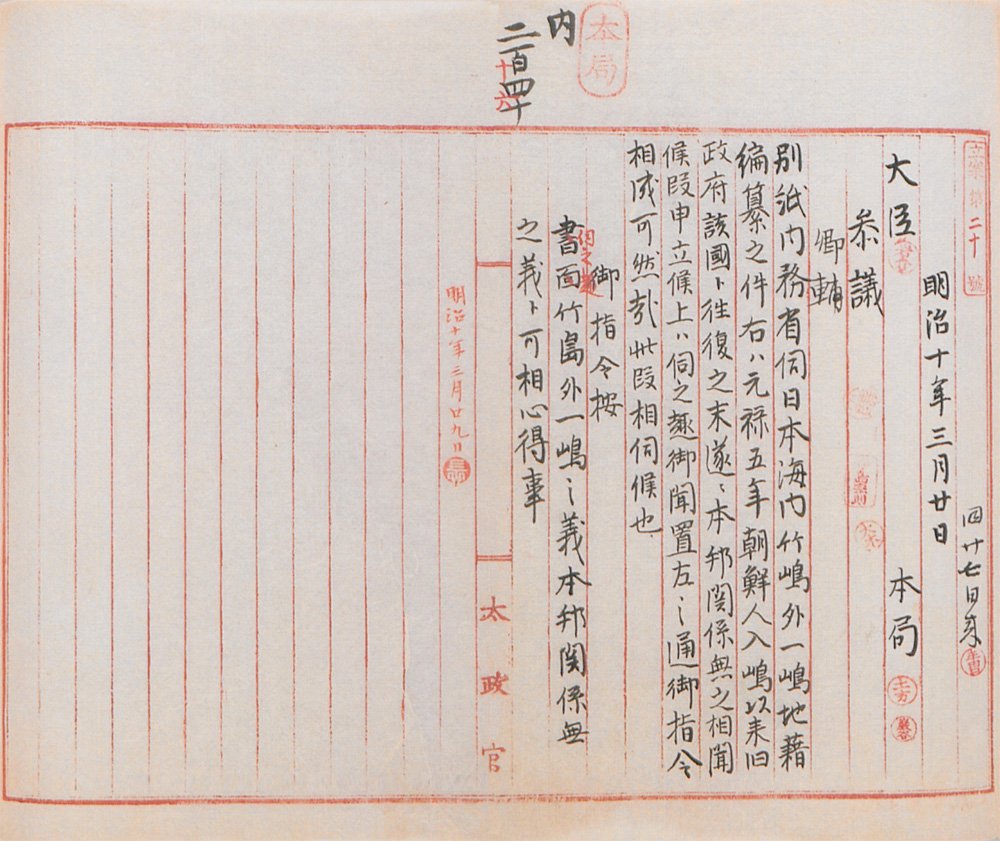 本局
内
二百四十
十六
立案第二十號
四廿七日来
明治十年三月廿日
大臣
本局
土方
巖谷
参議
卿輔
別紙内務省伺日本海内竹嶋外一嶋地籍
編纂之件右ハ元禄五年朝鮮人入嶋以来旧
政府該國ト往復之末遂ニ本邦関係無之相聞
候段申立候上ハ伺之趣御聞置左之通御指令
相成可然哉此段相伺候也
御指令按
伺之趣
書面竹島外一嶋之義本邦関係無
之義ト可相心得事
明治十年三月廿九日
太政官